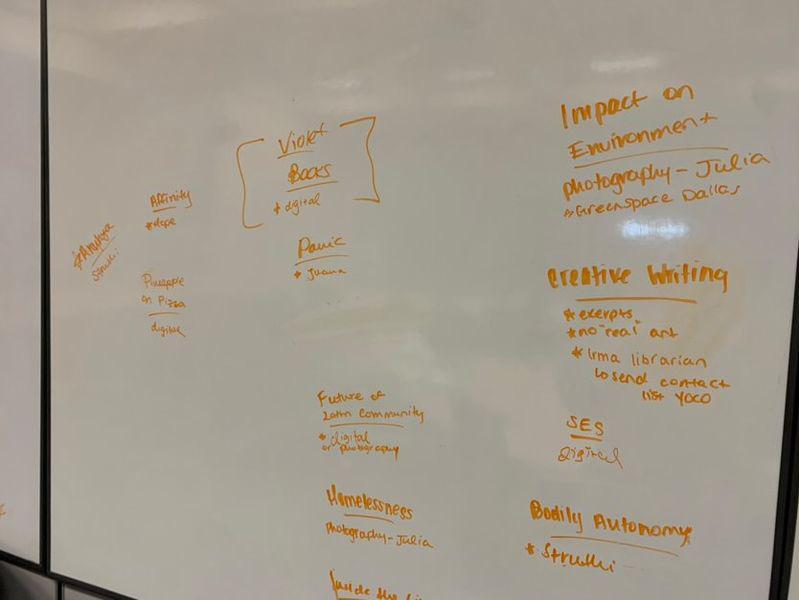 Violet
Books
* digital
Affinity
* Hope
Pineapple
on Pizza
digital
Panic
* Juana
Future of
Latin Community
* digital
or photography
Homelessness
Photography - Julia
Inside the
Impact on
Environment
photography - Julia
* Greenspace Dallas
Creative Writing
* exerpts
* no "real" art
* Irma librarian
to send contact
list YOCO
SES
Digital
Bodily Autonomy
* Struthi